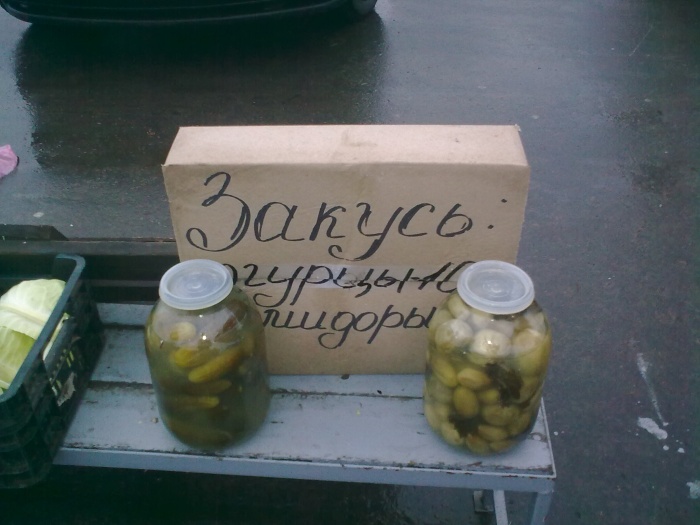 Закусь:
огурцы-10
мидоры